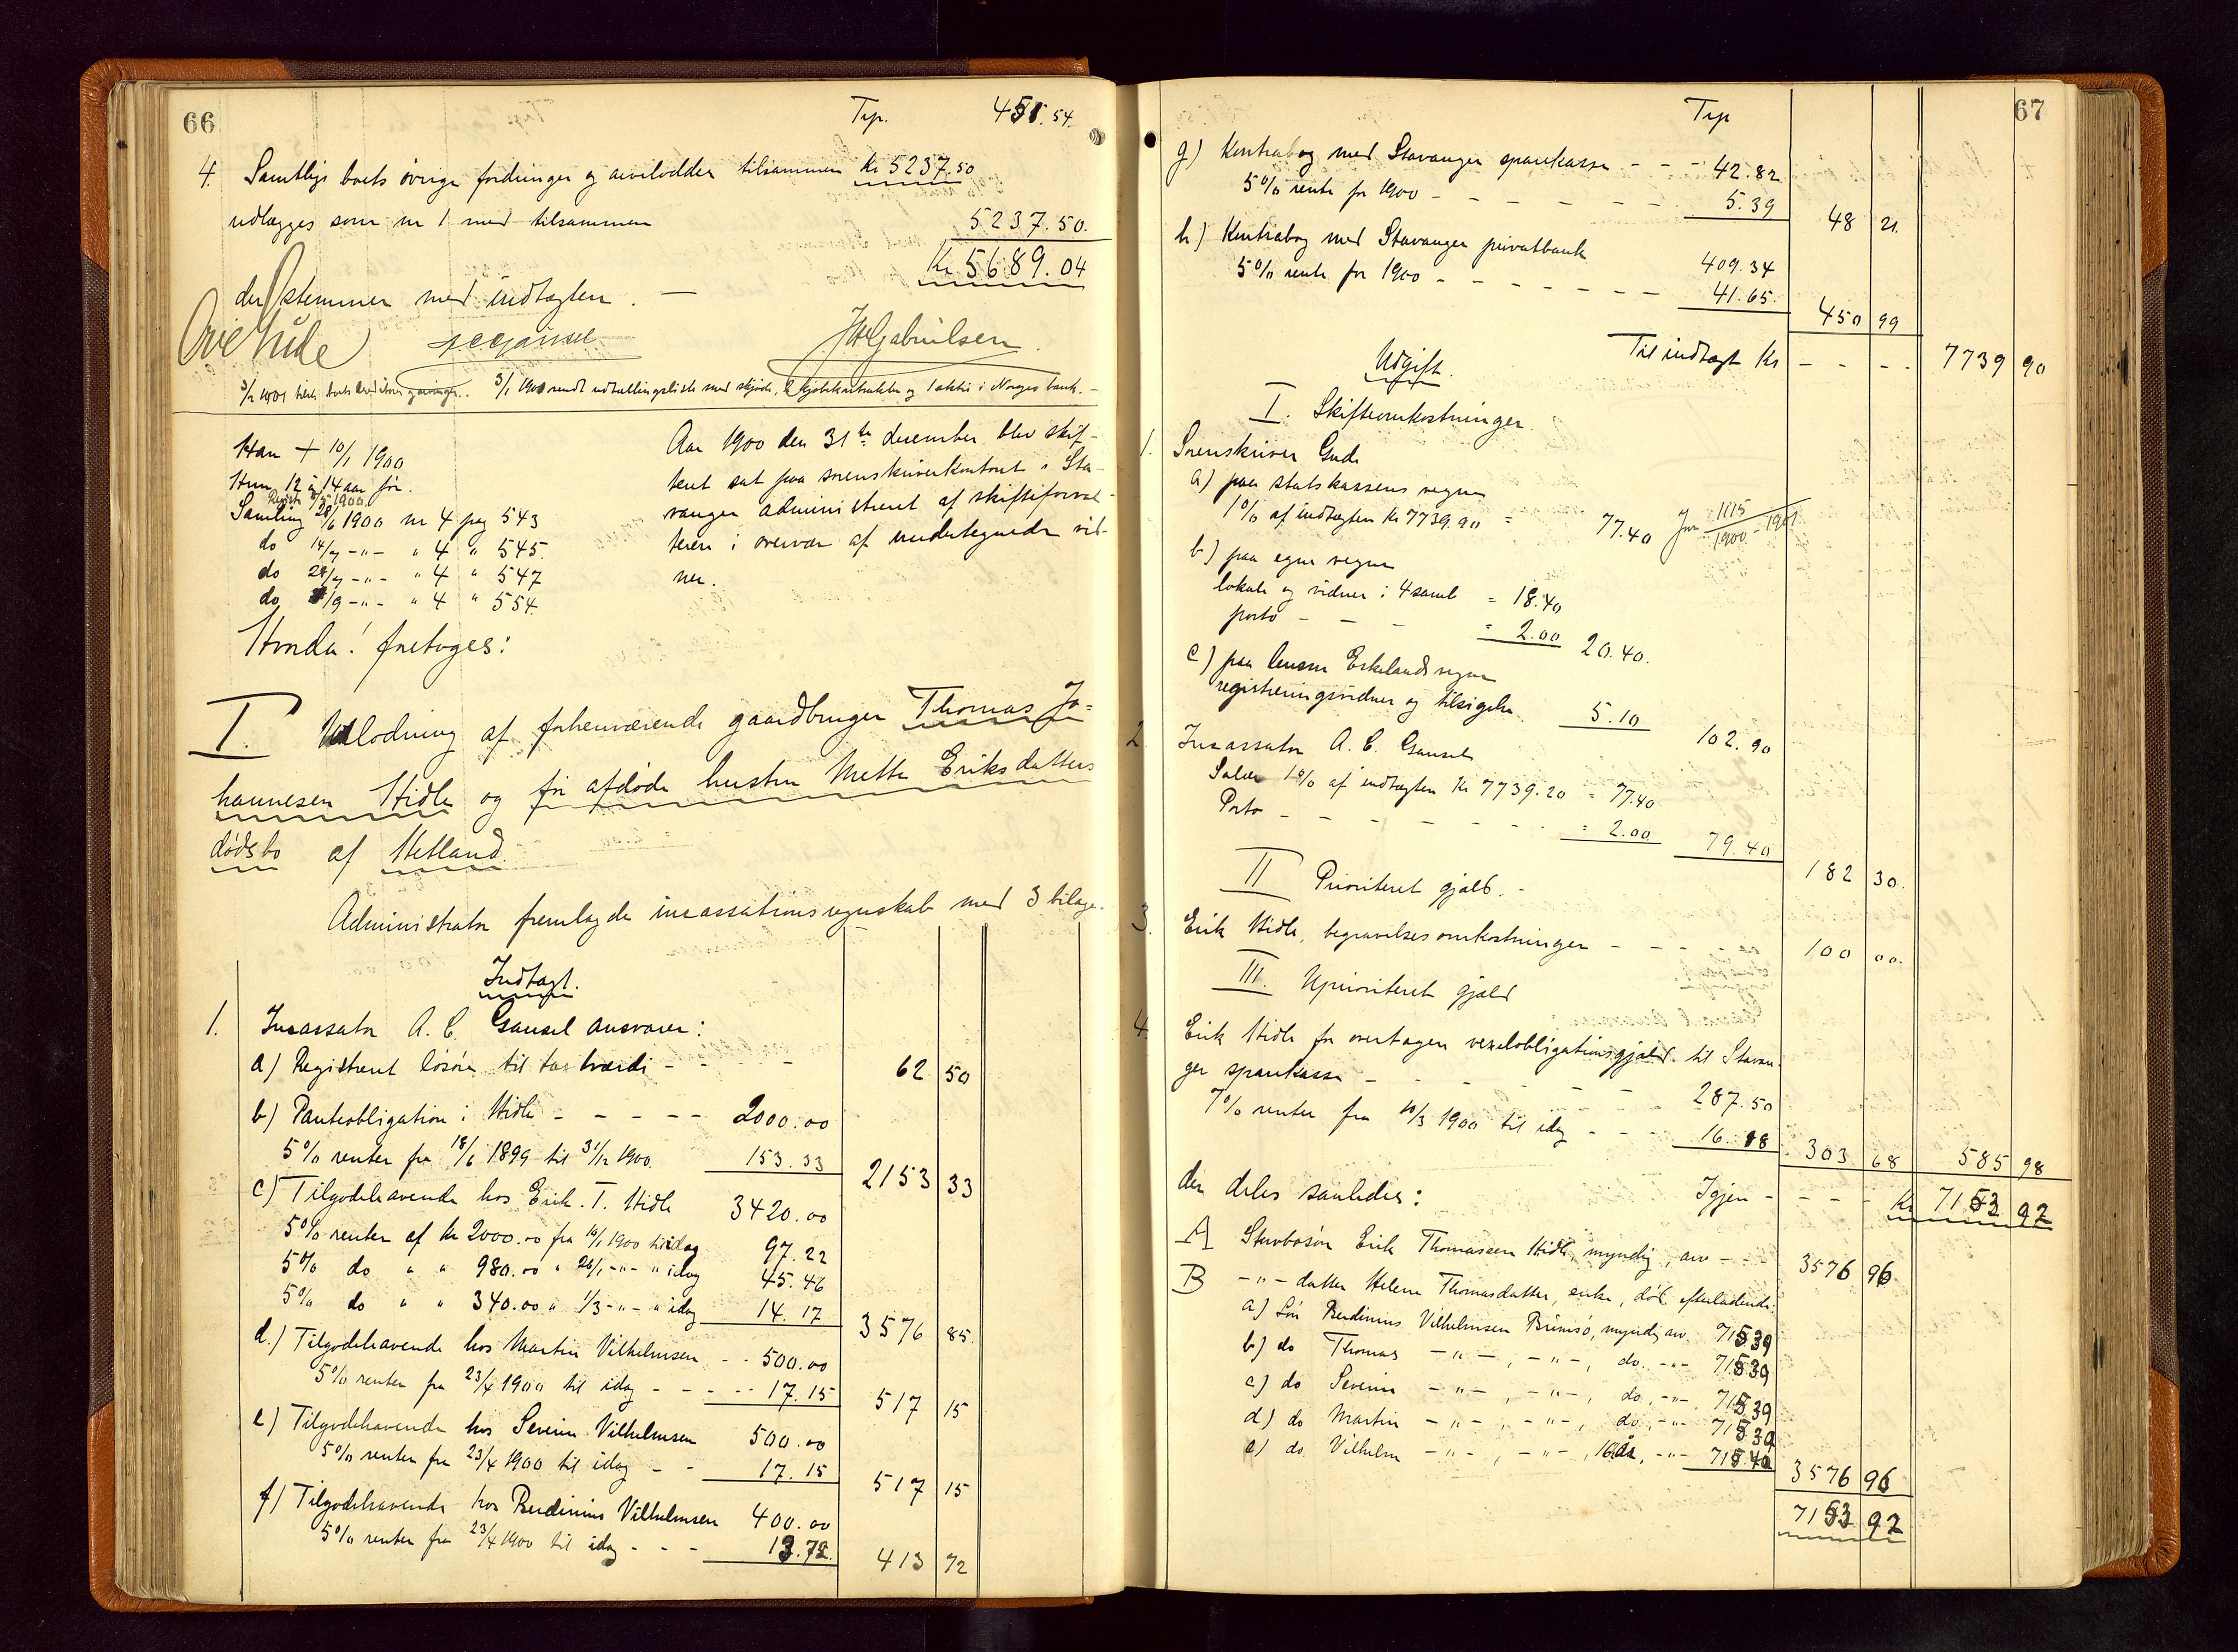 66
Trp. 451.54.
4. Samtlige boets øvrige fordringer og arvelodder tilsammen Kr 5237.50
udlægges som nr 1 med tilsammen 5237.50.
Kr 5689.04
der stemmer med indtægten. —
3/1 1901 sendt udtællingsliste med skjøde, 2 kjøbekontrakter og 1 aktie i Norges bank. —
Han + 10/1 1900
Hun 12 à 14 aar før.
Registr 5/5 1900
Samling 28/6 1900 nr 4 pag 543
do 14/7 -"- " 4 " 545
do 28/7 -"- " 4 " 547
do /9 -"- " 4 " 554
Aar 1900 den 31te december blev skif-
teret sat paa sorenskriverkontoret i Sta-
vanger administreret af skifteforval-
teren i overvær af undertegnede vid-
ner.
Hvorda! foretoges:
I. Udlodning af forhenværende gaardbruger Thomas Jo=
hannesen Hidle og før afdøde hustru Mette Eriksdatters
dødsbo af Hetland.
Administrator fremlagde incassationsregnskab med 3 bilage.
Indtægt.
1. Incassator A. C. Gausel ansvarer:
a) Registreret løsøre til taxtværdi - - - - 62 50
b) Panteobligation i Hidle - - - - - 2000.00
5% renter fra 18/6 1899 til 31/12 1900. 153.33 2153 33
c) Tilgodehavende hos Erik. T. Hidle 3420.00
5% renter af Kr 2000.00 fra 10/1 1900 til idag 97.22
5% do " " 980.00 " 26/1 -"- " idag 45.46
5% do " " 340.00 " 1/3 -"- " idag 14.17 3576 85
d.) Tilgodehavende hos Martin Vilhelmsen - - 500.00
5% renter fra 23/4 1900 til idag - - - - 17.15 517 15
e) Tilgodehavende hos Severin Vilhelmsen 500.00
5% renter fra 23/4 1900 til idag - - 17.15 517 15
f) Tilgodehavende hos Berdinius Vilhelmsen 400.00
5% renter fra 23/4 1900 til idag - - - 13.72. 413 72
67
Trp
g) Kontrabog med Stavanger sparekasse - - - 42.82
5% rente for 1900 - - - - - - 5.39 48 21.
h) Kontrabog med Stavanger privatbank 409.34
5% rente for 1900 - - - - - - - 41.65. 450 99
Til indtægt Kr - - - - 7739 90
Udgift.
I. Skifteomkostninger.
1. Sorenskriver Gude
a) paa statskassens vegne
1% af indtægten Kr 7739.90 = 77.40 Jnr 1115/1900 - 1901
b) paa egne vegne
lokale og vidner i 4 saml = 18.40
porto - - - = 2.00 20.40.
c) paa lensm Eskelands vegne
registreringsvidner og tilsigelse. 5.10 102.90
2. Incassator A. C. Gausel
Salær 1% af indtægten Kr 7739.20 = 77.40
Porto - - - - - - - = 2.00 79.40 182 30.
II Prioriteret gjæld. -
3. Erik Hidle, begravelsesomkostninger - - - - 100 00.
III. Uprioriteret gjæld
4. Erik Hidle for overtagen vexelobligationsgjæld til Stavan-
ger sparekasse - - - - - - 287.50
7% renter fra 10/3 1900 til idag - - - 16.18 303 68 585 98
der deles saaledes: Igjen - - - - Kr 7153 92
A Stervbosøn Erik Thomassen Hidle, myndig, arv - - - 3576 96
B -"- datter Helene Thomasdatter, enke, død. efterladende:
a) Søn Berdinius Vilhelmsen Brimsø, myndig arv 715 39
b) do Thomas -"-, -"-, do. -"- 715 39
c) do Severin -"-, -"-, do, -"- 715 39
d) do Martin -"-, -"-, do, -"- 715 39
e) do Vilhelm -"-, -"-, 16 aar, -"- 715.40 3576 96
7153 92